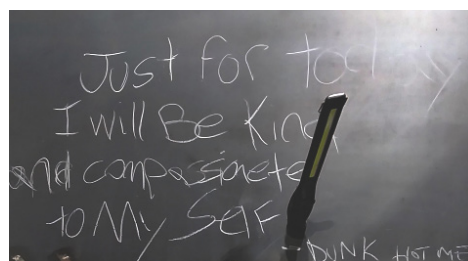 Just for today
I will Be Kind
and compassionete
to My Self
DUNK HOT ME